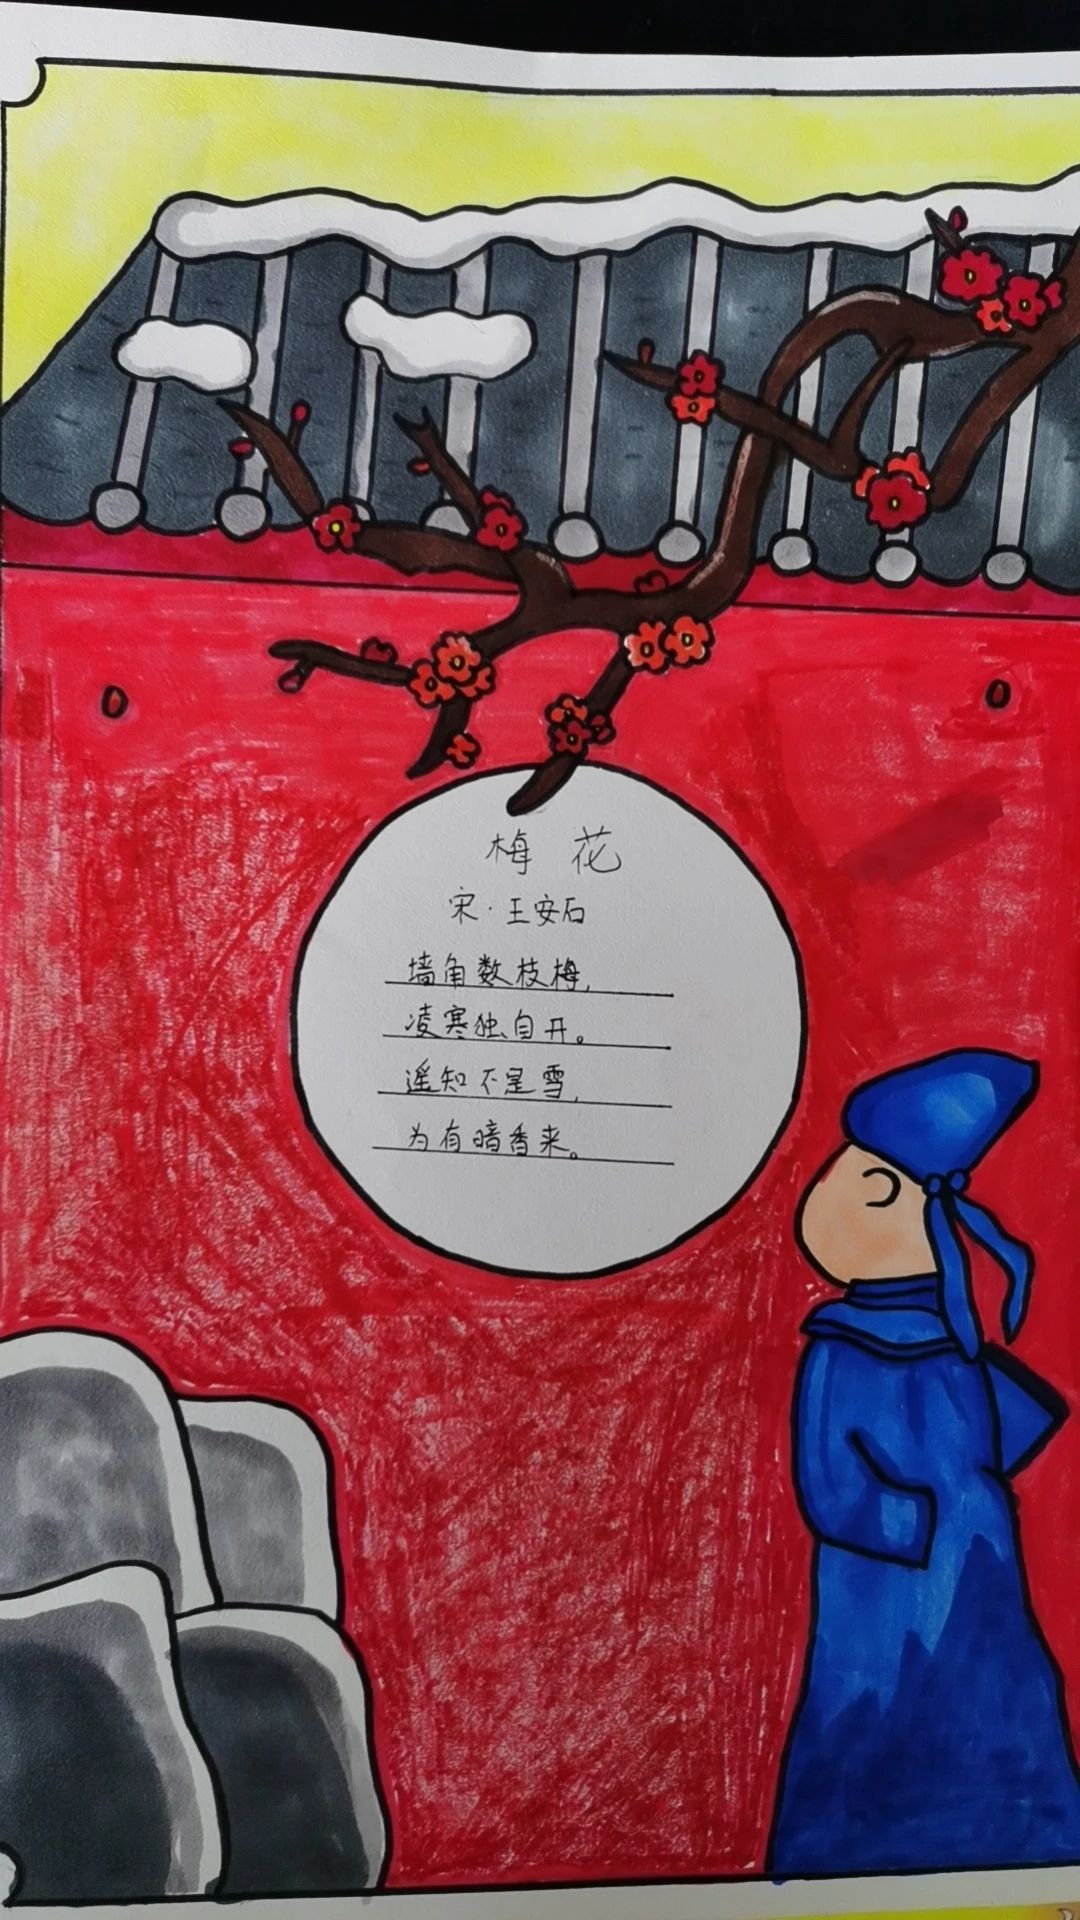 梅 花
宋·王安石
墙角数枝梅,
凌寒独自开。
遥知不是雪,
为有暗香来。